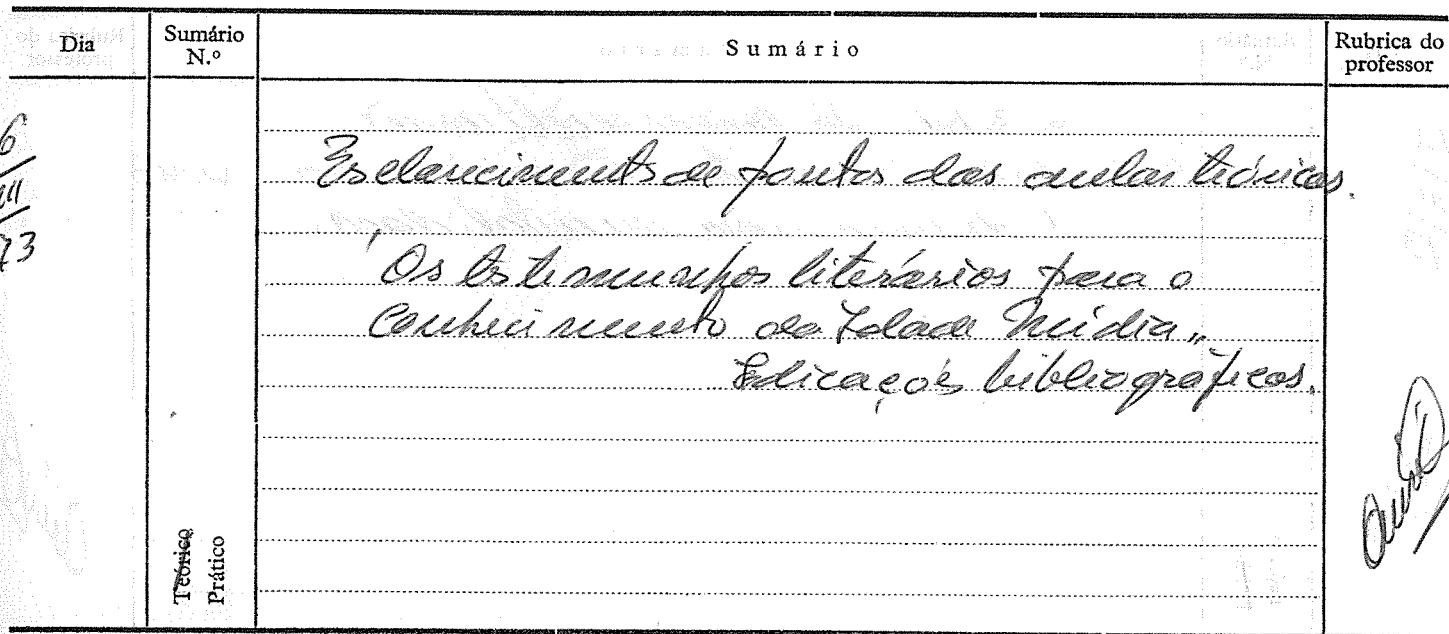 Dia
Sumário N.º
Sumário
Rubrica do professor
6
73
Esclarecimento de pontos das aulas teóricas.
"Os testemunhos literários para o
Conhecimento da Idade Média"
Indicações bibliográficas.
Teórico
Prático